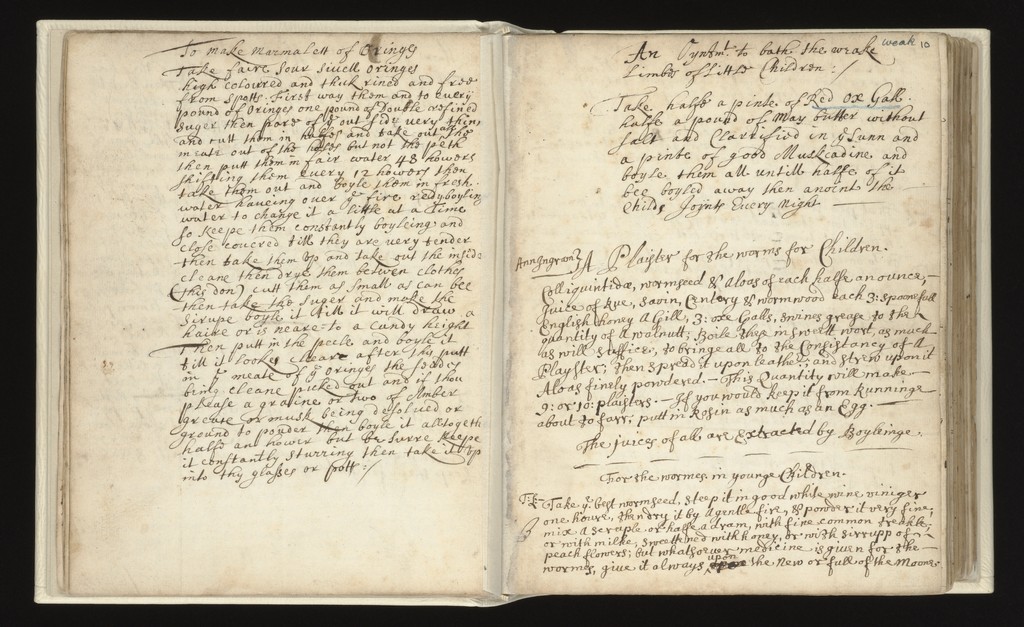 To make marmalett of Oringes
Take faire sour sivell oringes
high colourred and thick rined and free
from spotts. First way them and to every
pound of Oringes one pound of double refined
suger then pare of ye out side very thin
and cutt them in halfes and take out all the
meate out of the halfes but not the peth
then putt them in fair water 48 howers
shifting them every 12 howers then
take them out and boyle them in fresh
water haveing over ye fire redy boyling
water to change it a little at a Time
so keepe them constantly boyleing and
close covered till they are very tender
then take them up and take out the inside
cleane then drye them betwen clothes
(this don) cutt them as small as can bee
then take the suger and make the
sirupe boyle it till it will draw a
haire or is neare to a candy height
Then putt in the peele and boyle it
till it lookes cleare after this putt
in ye meate of ye oringes the seedes
being cleane picked out and if thou
please a graine or two of Amber
greace or musk being desolved or
ground to pouder then boyle it altogeth
halfe an hower but be surre keepe
it constantly sturring then take it up
into thy glasses or potts :/
weak 10
An Oyntmt. to bath the weake
Limbs of Little Children :/
Take halfe a pinte of Red Ox Gall
halfe a pound of May butter without
salt and Clarrified in ye Sunn and
a pinte of good Muskadine and
boyle them all untill halfe of it
bee boyled away then anoint the
Childs Joynts Every Night
A Plaister for the worms for Children.
Colliquintidæ, wormseed & aloos of each halfe an ounce,
Juice of Rue, Savin, Centory & wormwood each 3: spoonfull
English honey A Gill, 3: oxe Galls, swines grease to the
quantity of A walnutt; Boile these in sweett wort, as much
as will suffice, to bringe all to the Consistancy of A
Playster; then spread it upon leather; and strew upon it
Aloas finely powdered. — This Quantity will make
9: or 10: plaisters. — If you would keep it from Runninge
about to farr; putt in Rosin as much as an Egg.
The juices of all are Extracted by Boyleinge.
For the wormes in younge Children.
Take ye. best wormseed, steep it in good white wine viniger
one houre, then dry it by A gentle fire, & powder it very fine,
mix A scruple or halfe a dram, with fine common treakle,
or with milke, sweettened with honey, or with sirrupp of
peach flowers; but whatsoever medicine is given for the
wormes, give it always upon the New or full of the Moone.